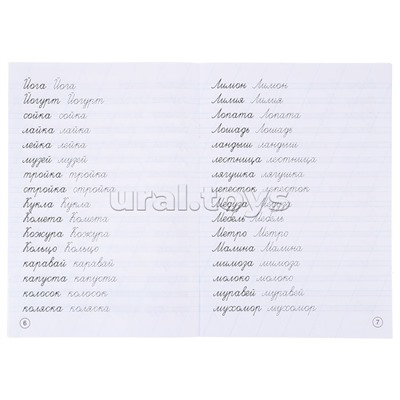 Йога Йога
Йогурт Йогурт
сойка сойка
лайка лайка
лейка лейка
музей музей
тройка тройка
стройка стройка
Кукла Кукла
Комета Комета
Кожура Кожура
Кольцо Кольцо
каравай каравай
капуста капуста
колосок колосок
коляска коляска
6
Лимон Лимон
Лилия Лилия
Лопата Лопата
Лошадь Лошадь
ландыш ландыш
лестница лестница
лягушка лягушка
лепесток лепесток
Медуза Медуза
Мебель Мебель
Метро Метро
Малина Малина
мимоза мимоза
молоко молоко
муравей муравей
мухомор мухомор
7
ural.toys